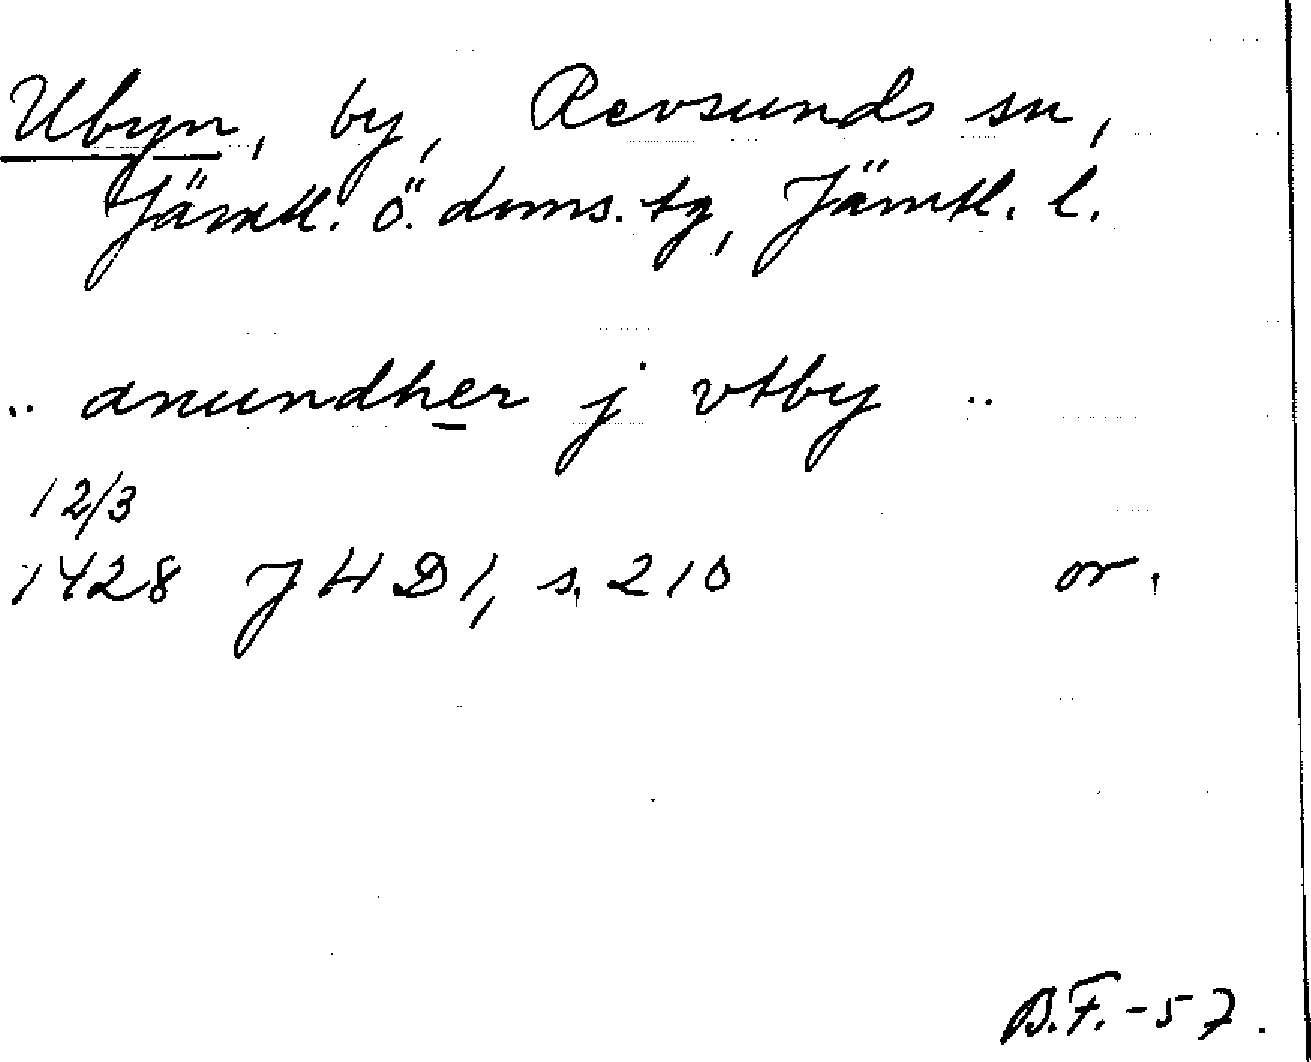 Ubyn, by, Revsunds sn,
Jämtl. ö. doms. tg, Jämtl. l.
.. anundher j vtby ..
12/3
1428 JHD1, s. 210 or.
B.F.-57.